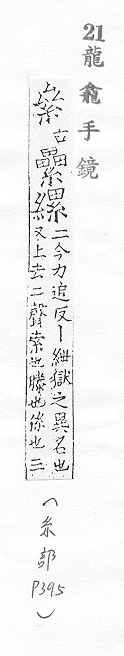 21 龍龕手鏡
古纍縲二今力追反丨紲獄之異名也
又上去二聲索也縢也係也三
(糸部 P395)